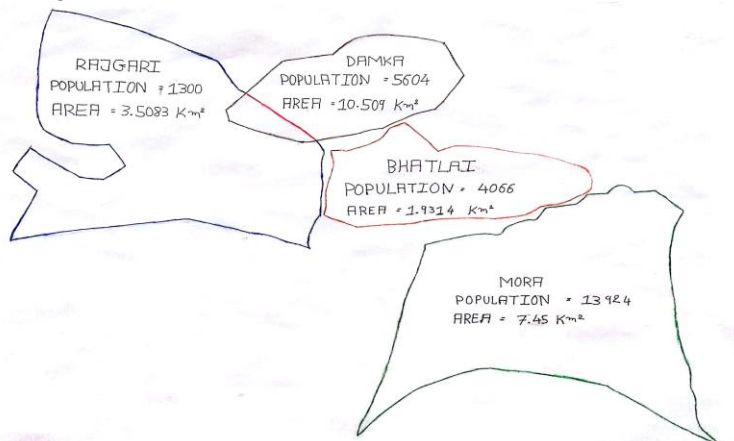 RAJGARI
POPULATION = 1300
AREA = 3.5083 Km²
DAMKA
POPULATION = 5604
AREA = 10.509 Km²
BHATLAI
POPULATION = 4066
AREA = 1.9314 Km²
MORA
POPULATION = 13924
AREA = 7.45 Km²